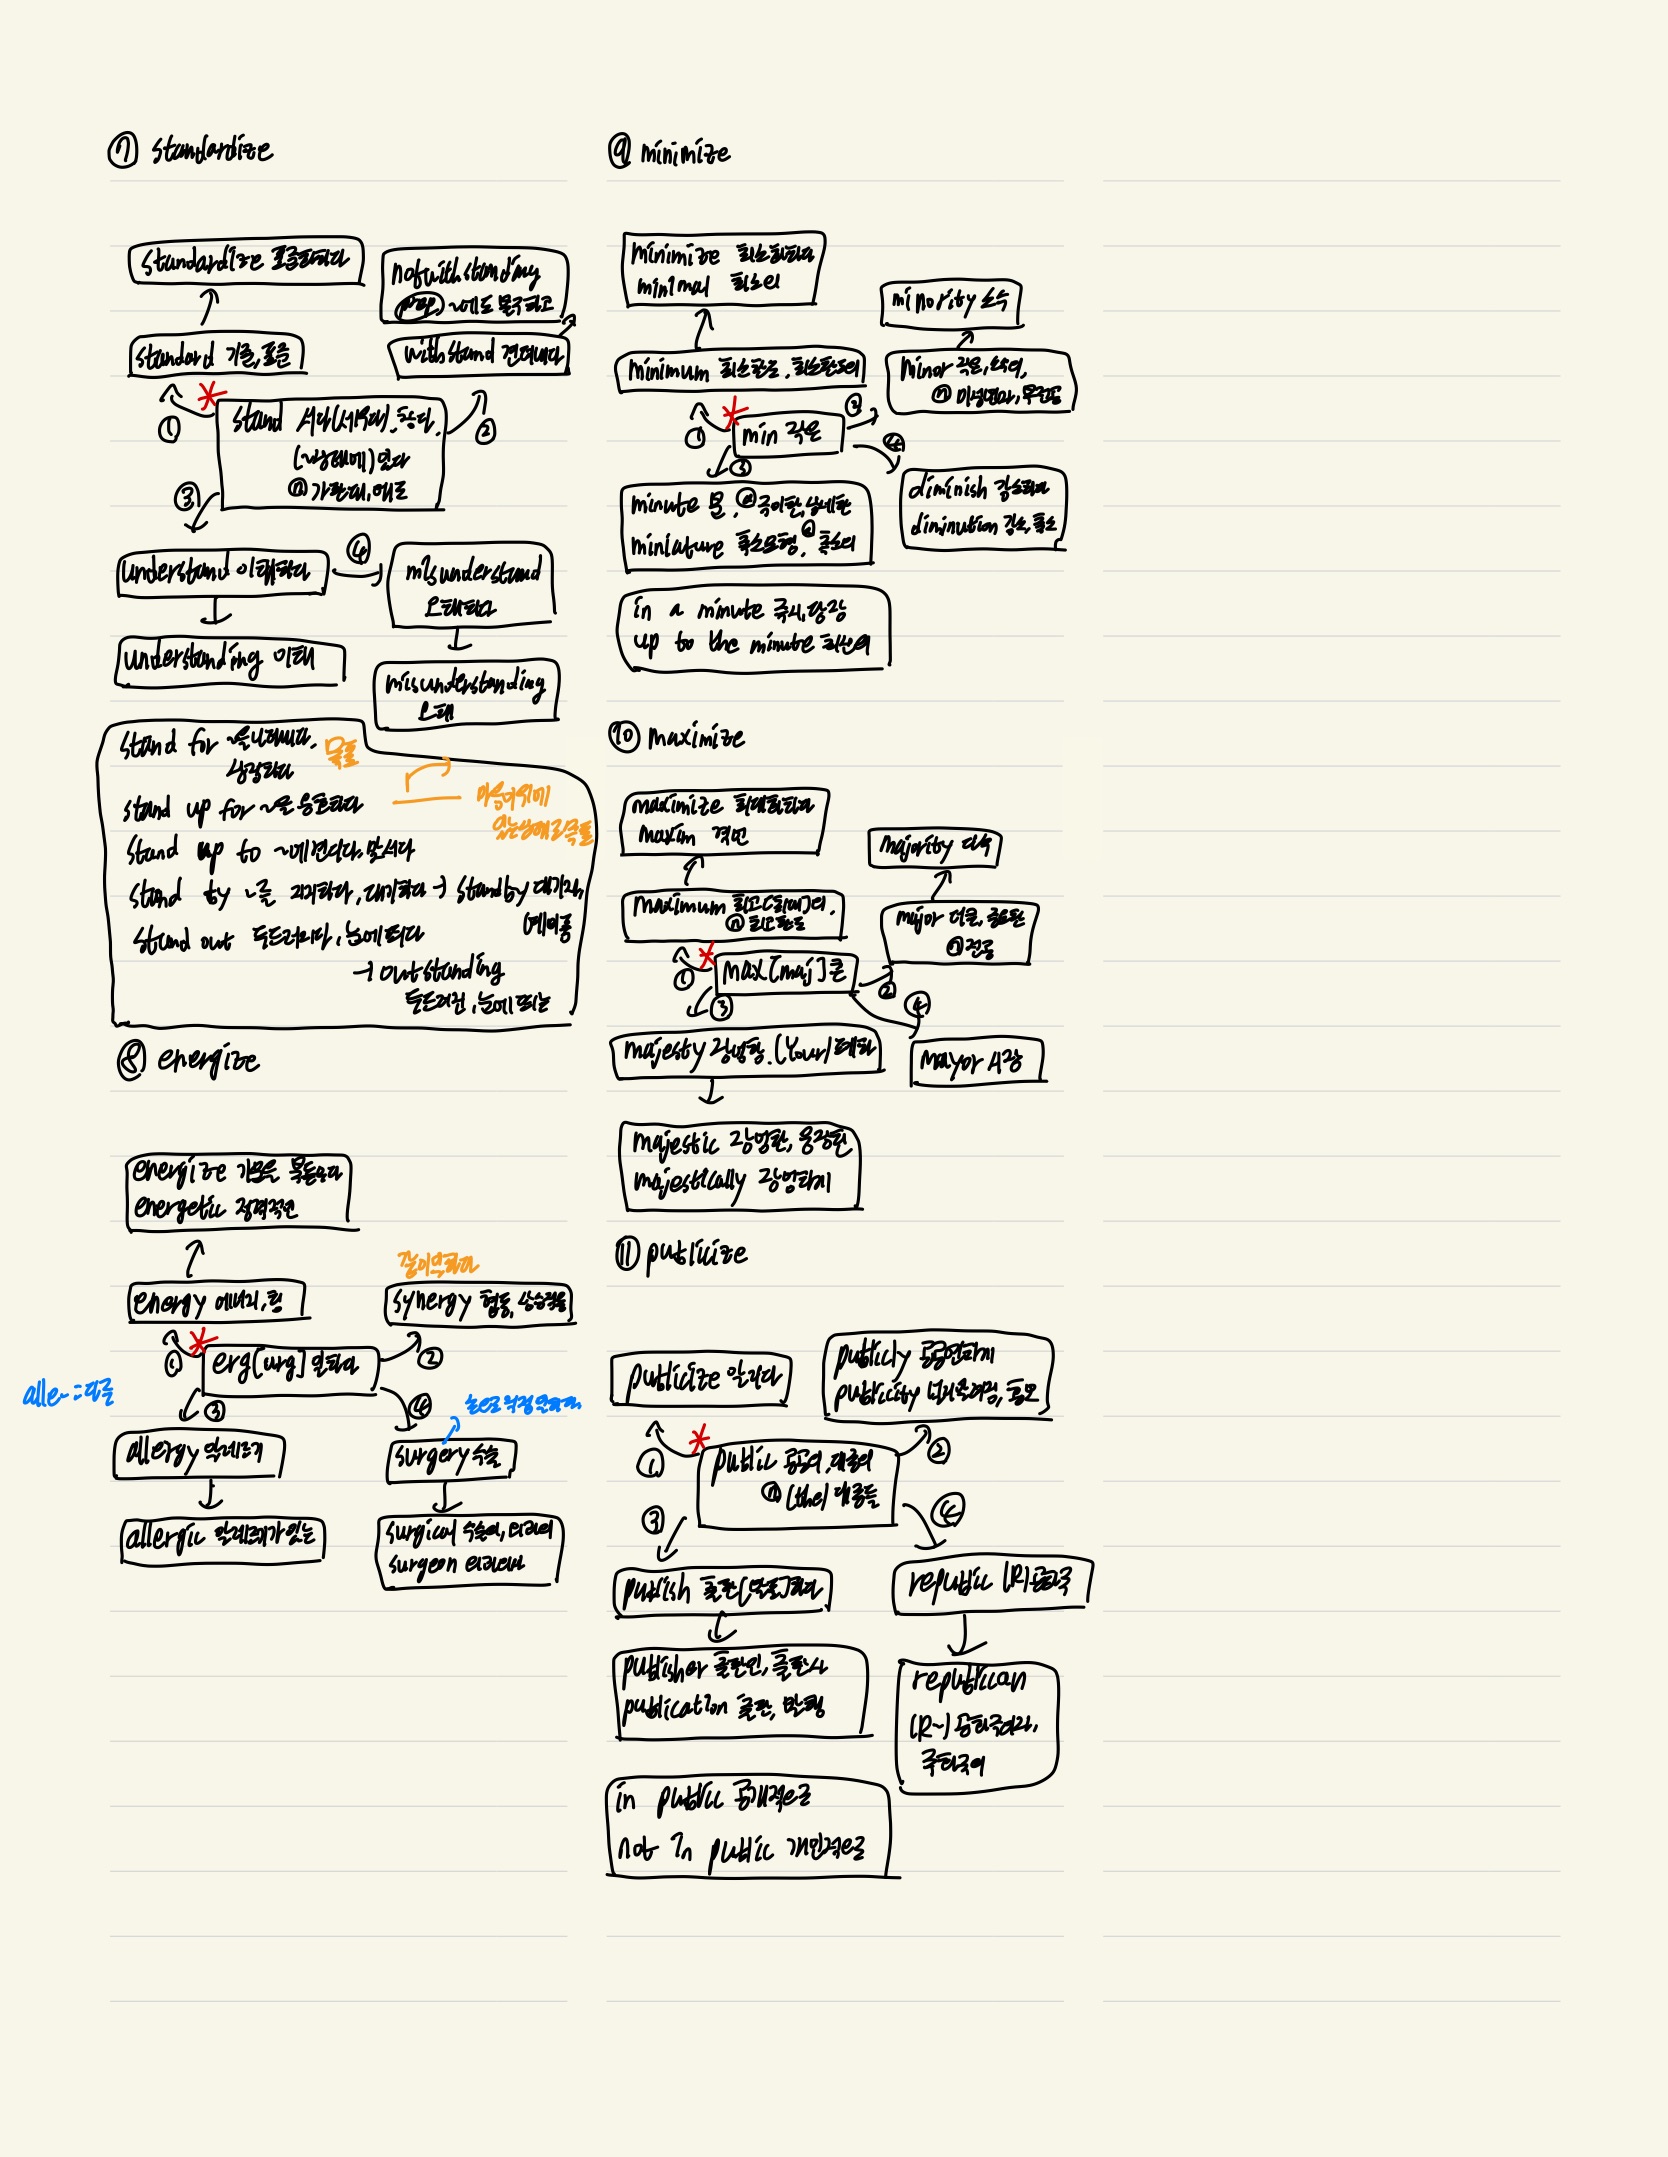 ⑦ standardize
standardize 표준화하다
notwithstanding
(prep) ~에도 불구하고
standard 기준, 표준
withstand 견뎌내다
① ②
stand 서다(서있다), 참다,
(~상태에) 있다
ⓝ 가판대, 태도
③
understand 이해하다
④
misunderstand
오해하다
understanding 이해
misunderstanding
오해
stand for ~을 나타내다,
상징하다
목표
stand up for ~을 옹호하다
마음이 위에
있는 상태로 목표를
stand up to ~에 견디다, 맞서다
stand by ~를 지지하다, 대기하다 → standby 대기자,
예비품
stand out 두드러지다, 눈에 띄다
→ outstanding
두드러진, 눈에 띄는
⑧ energize
energize 기운을 북돋우다
energetic 정력적인
같이 일하다
energy 에너지, 힘
synergy 협동, 상승작용
① ②
erg[urg] 일하다
alle-: 다른
③ ④
손으로 직접 일하다
allergy 알레르기
surgery 수술
allergic 알레르기가 있는
surgical 수술의, 외과의
surgeon 외과의사
⑨ minimize
minimize 최소화하다
minimal 최소의
minority 소수
minimum 최소한도, 최소한도의
minor 작은, 소수의,
ⓝ 미성년자, 부전공
① ②
min 작은
③ ④
minute 분, ⓐ 극미한, 상세한
miniature 축소모형, ⓐ 축소의
diminish 감소하다
diminution 감소, 축소
in a minute 즉시, 당장
up to the minute 최신의
⑩ maximize
maximize 최대화하다
maxim 격언
majority 다수
maximum 최고(최대)의,
ⓝ 최고한도
major 더 큰, 중요한
ⓝ 전공
① ②
max[maj] 큰
③ ④
majesty 장엄함, (Your) 폐하
mayor 시장
majestic 장엄한, 웅장한
majestically 장엄하게
⑪ publicize
publicize 알리다
publicly 공공연하게
publicity 널리 알려짐, 홍보
① ②
public 공공의, 대중의
ⓝ (the) 대중들
③ ④
publish 출판[발표]하다
republic (R) 공화국
publisher 출판인, 출판사
publication 출판, 발행
republican
(R~) 공화국의
공화국의
in public 공개적으로
not in public 개인적으로